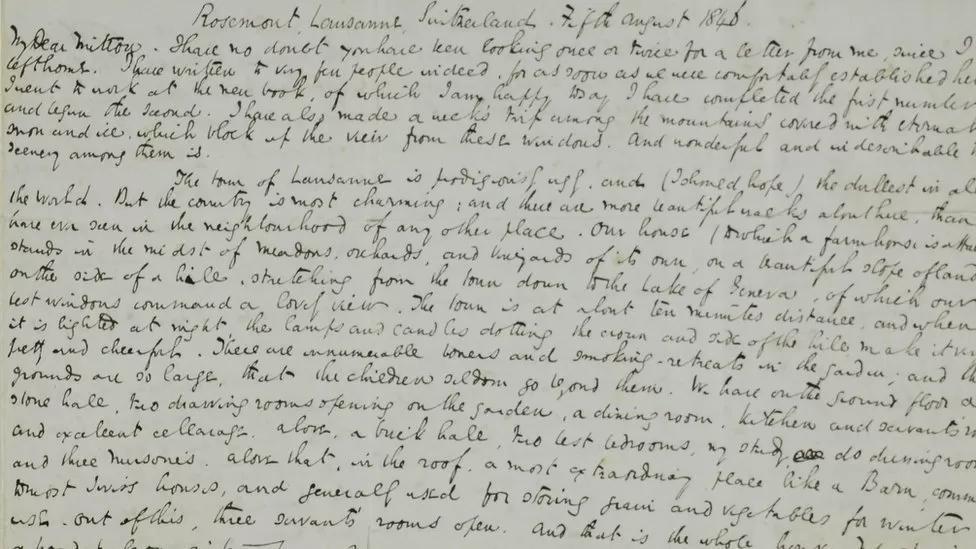 Rosemont, Lausanne, Switzerland. Fifth August 1846.
My Dear Mitton. I have no doubt you have been looking once or twice for a letter from me, since I
left home. I have written to very few people indeed, for as soon as we were comfortably established he
I went to work at the new book, of which I am happy today I have completed the first number
and begun the second. I have also made a week's trip among the mountains covered with eternal
snow and ice, which block up the view from these windows. And wonderful and indescribable
scenery among them is.
The town of Lausanne is prodigiously ugly, and (I should hope) the dullest in al
the world. But the country is most charming; and there are more beautiful walks about here, than
have ever seen in the neighbourhood of any other place. Our house (to which a farmhouse is atta
stands in the midst of meadows, orchards, and vineyards of its own, on a beautiful slope of land
on the side of a hill, stretching from the town down to the Lake of Geneva, of which our
best windows command a lovely view. The town is at about ten minutes distance, and when
it is lighted at night the lamps and candles dotting the crown and side of the hill make it v
pretty and cheerful. There are innumerable bowers and smoking-retreats in the garden; and th
grounds are so large, that the children seldom go beyond them. We have on the ground floor a
stone hall, two drawing rooms opening on the garden, a dining room, kitchen and servants r
and excellent cellarage. above, a brick hall, two best bedrooms, my study do dressing room
and three Nurseries. above that, in the roof, a most extraordinary place like a Barn, comm
to most Swiss houses, and generally used for storing grain and vegetables for winter
use. out of this, three servants' rooms open. And that is the whole